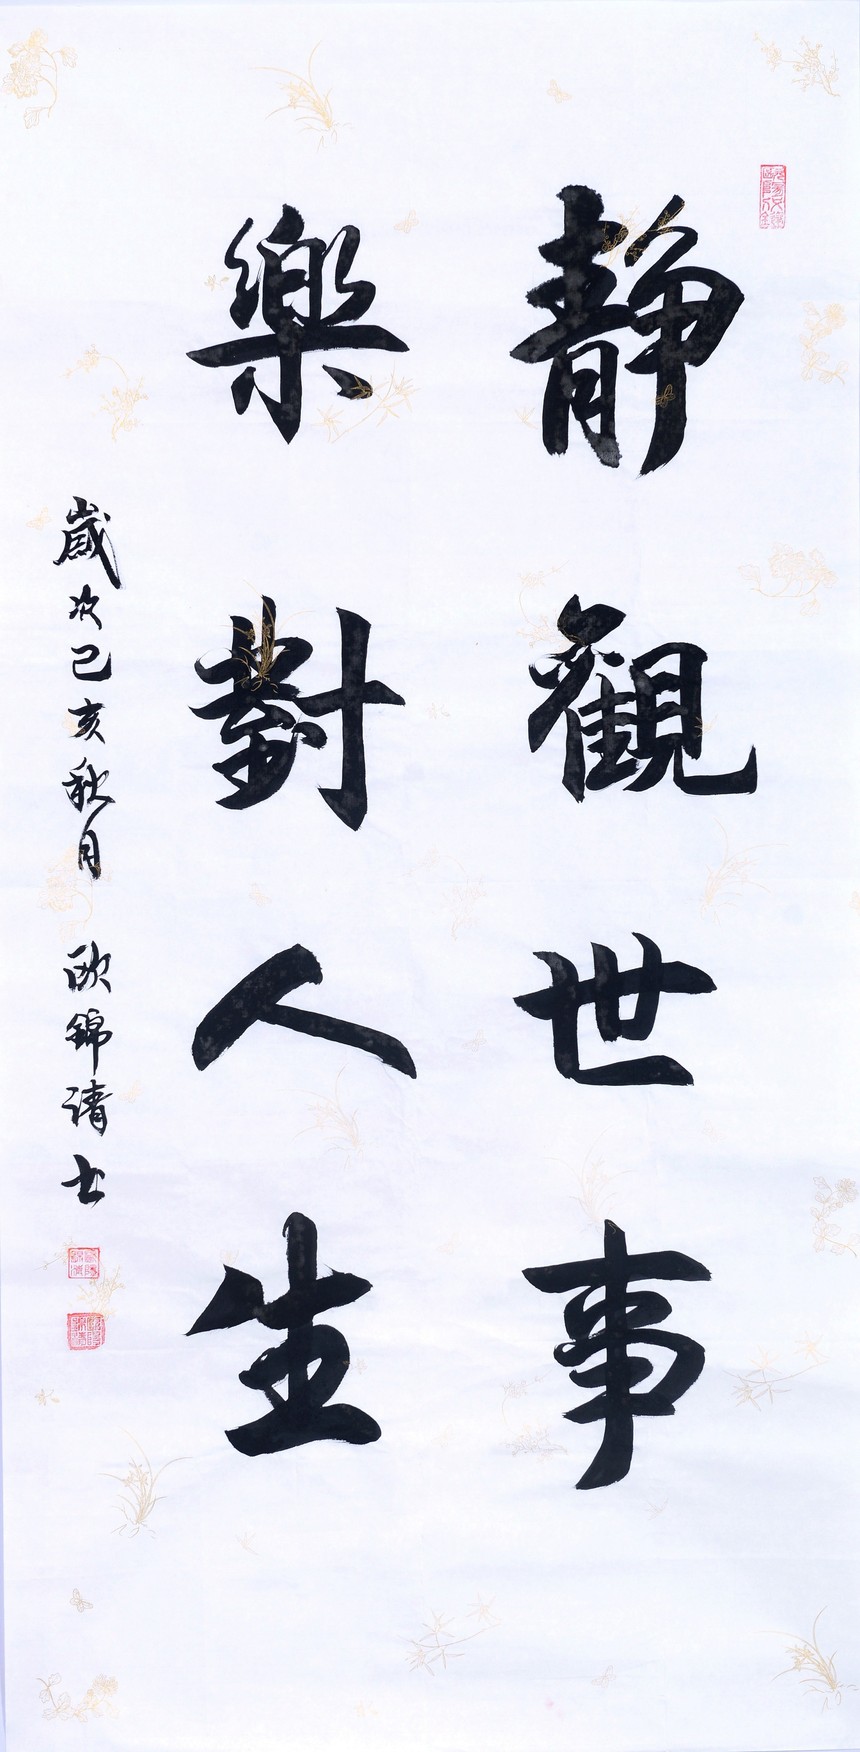 靜觀世事
樂對人生
歲次己亥秋月 欧錦清书